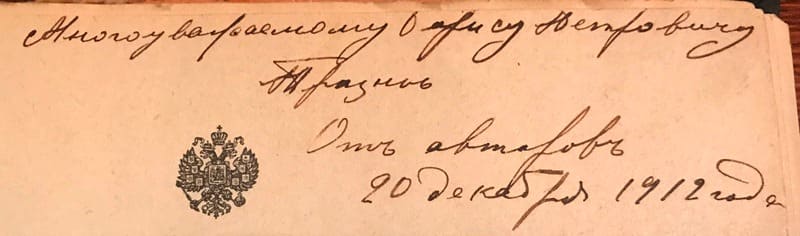 Многоуважаемому Борису Петровичу
Отъ авторовъ
20 декабря 1912 года